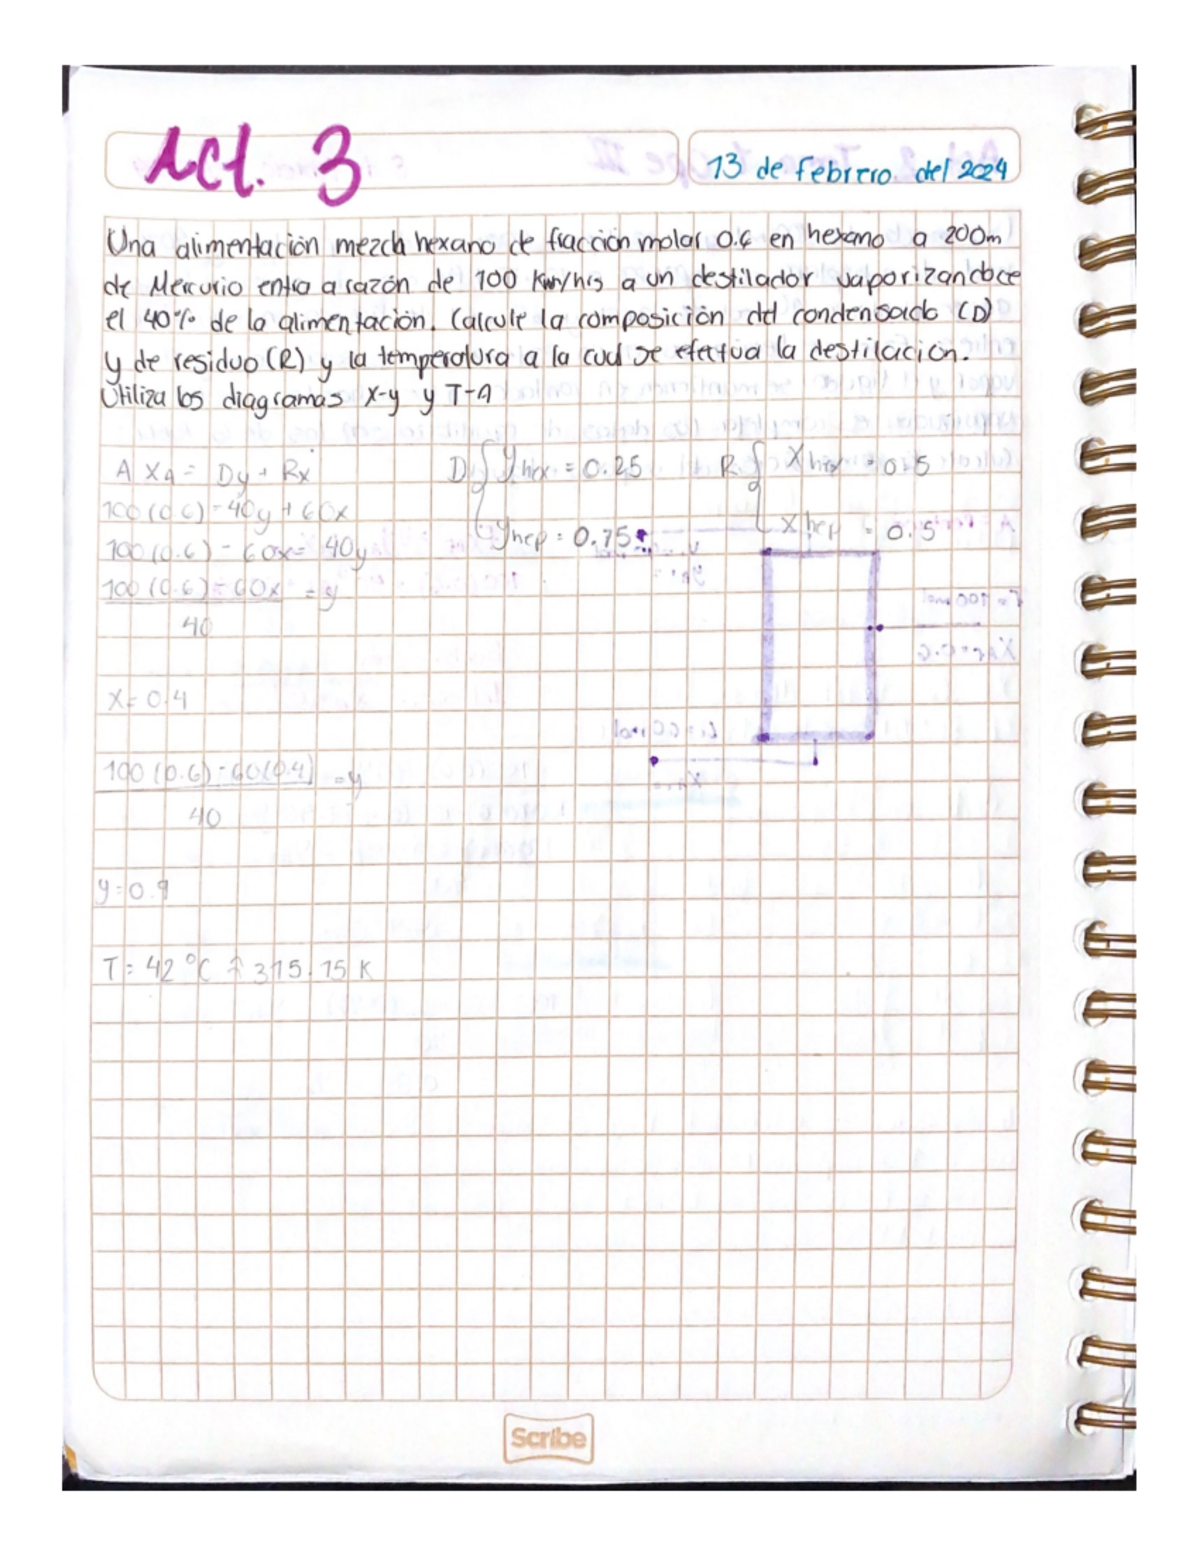 Act. 3
13 de febrero del 2024
Una alimentación mezcla hexano de fracción molar 0.6 en hexano a 200m
de Mercurio entra a razón de 100 Km/hrs a un destilador vaporizandoce
el 40% de la alimentación. Calcule la composición del condensado (D)
y de residuo (R) y la temperatura a la cual se efectua la destilación.
Utiliza los diagramas X-y y T-A
A XA = Dy + Rx
100 (0.6) = 40y + 60x
100 (0.6) - 60x = 40y
100 (0.6) - 60x = y
40
X = 0.4
100 (0.6) - 60(0.4) = y
40
y = 0.9
T = 42 °C 315.15 K
D { yhex = 0.25
yhep = 0.75
R { Xhex = 0.5
Xhep = 0.5
Scribe